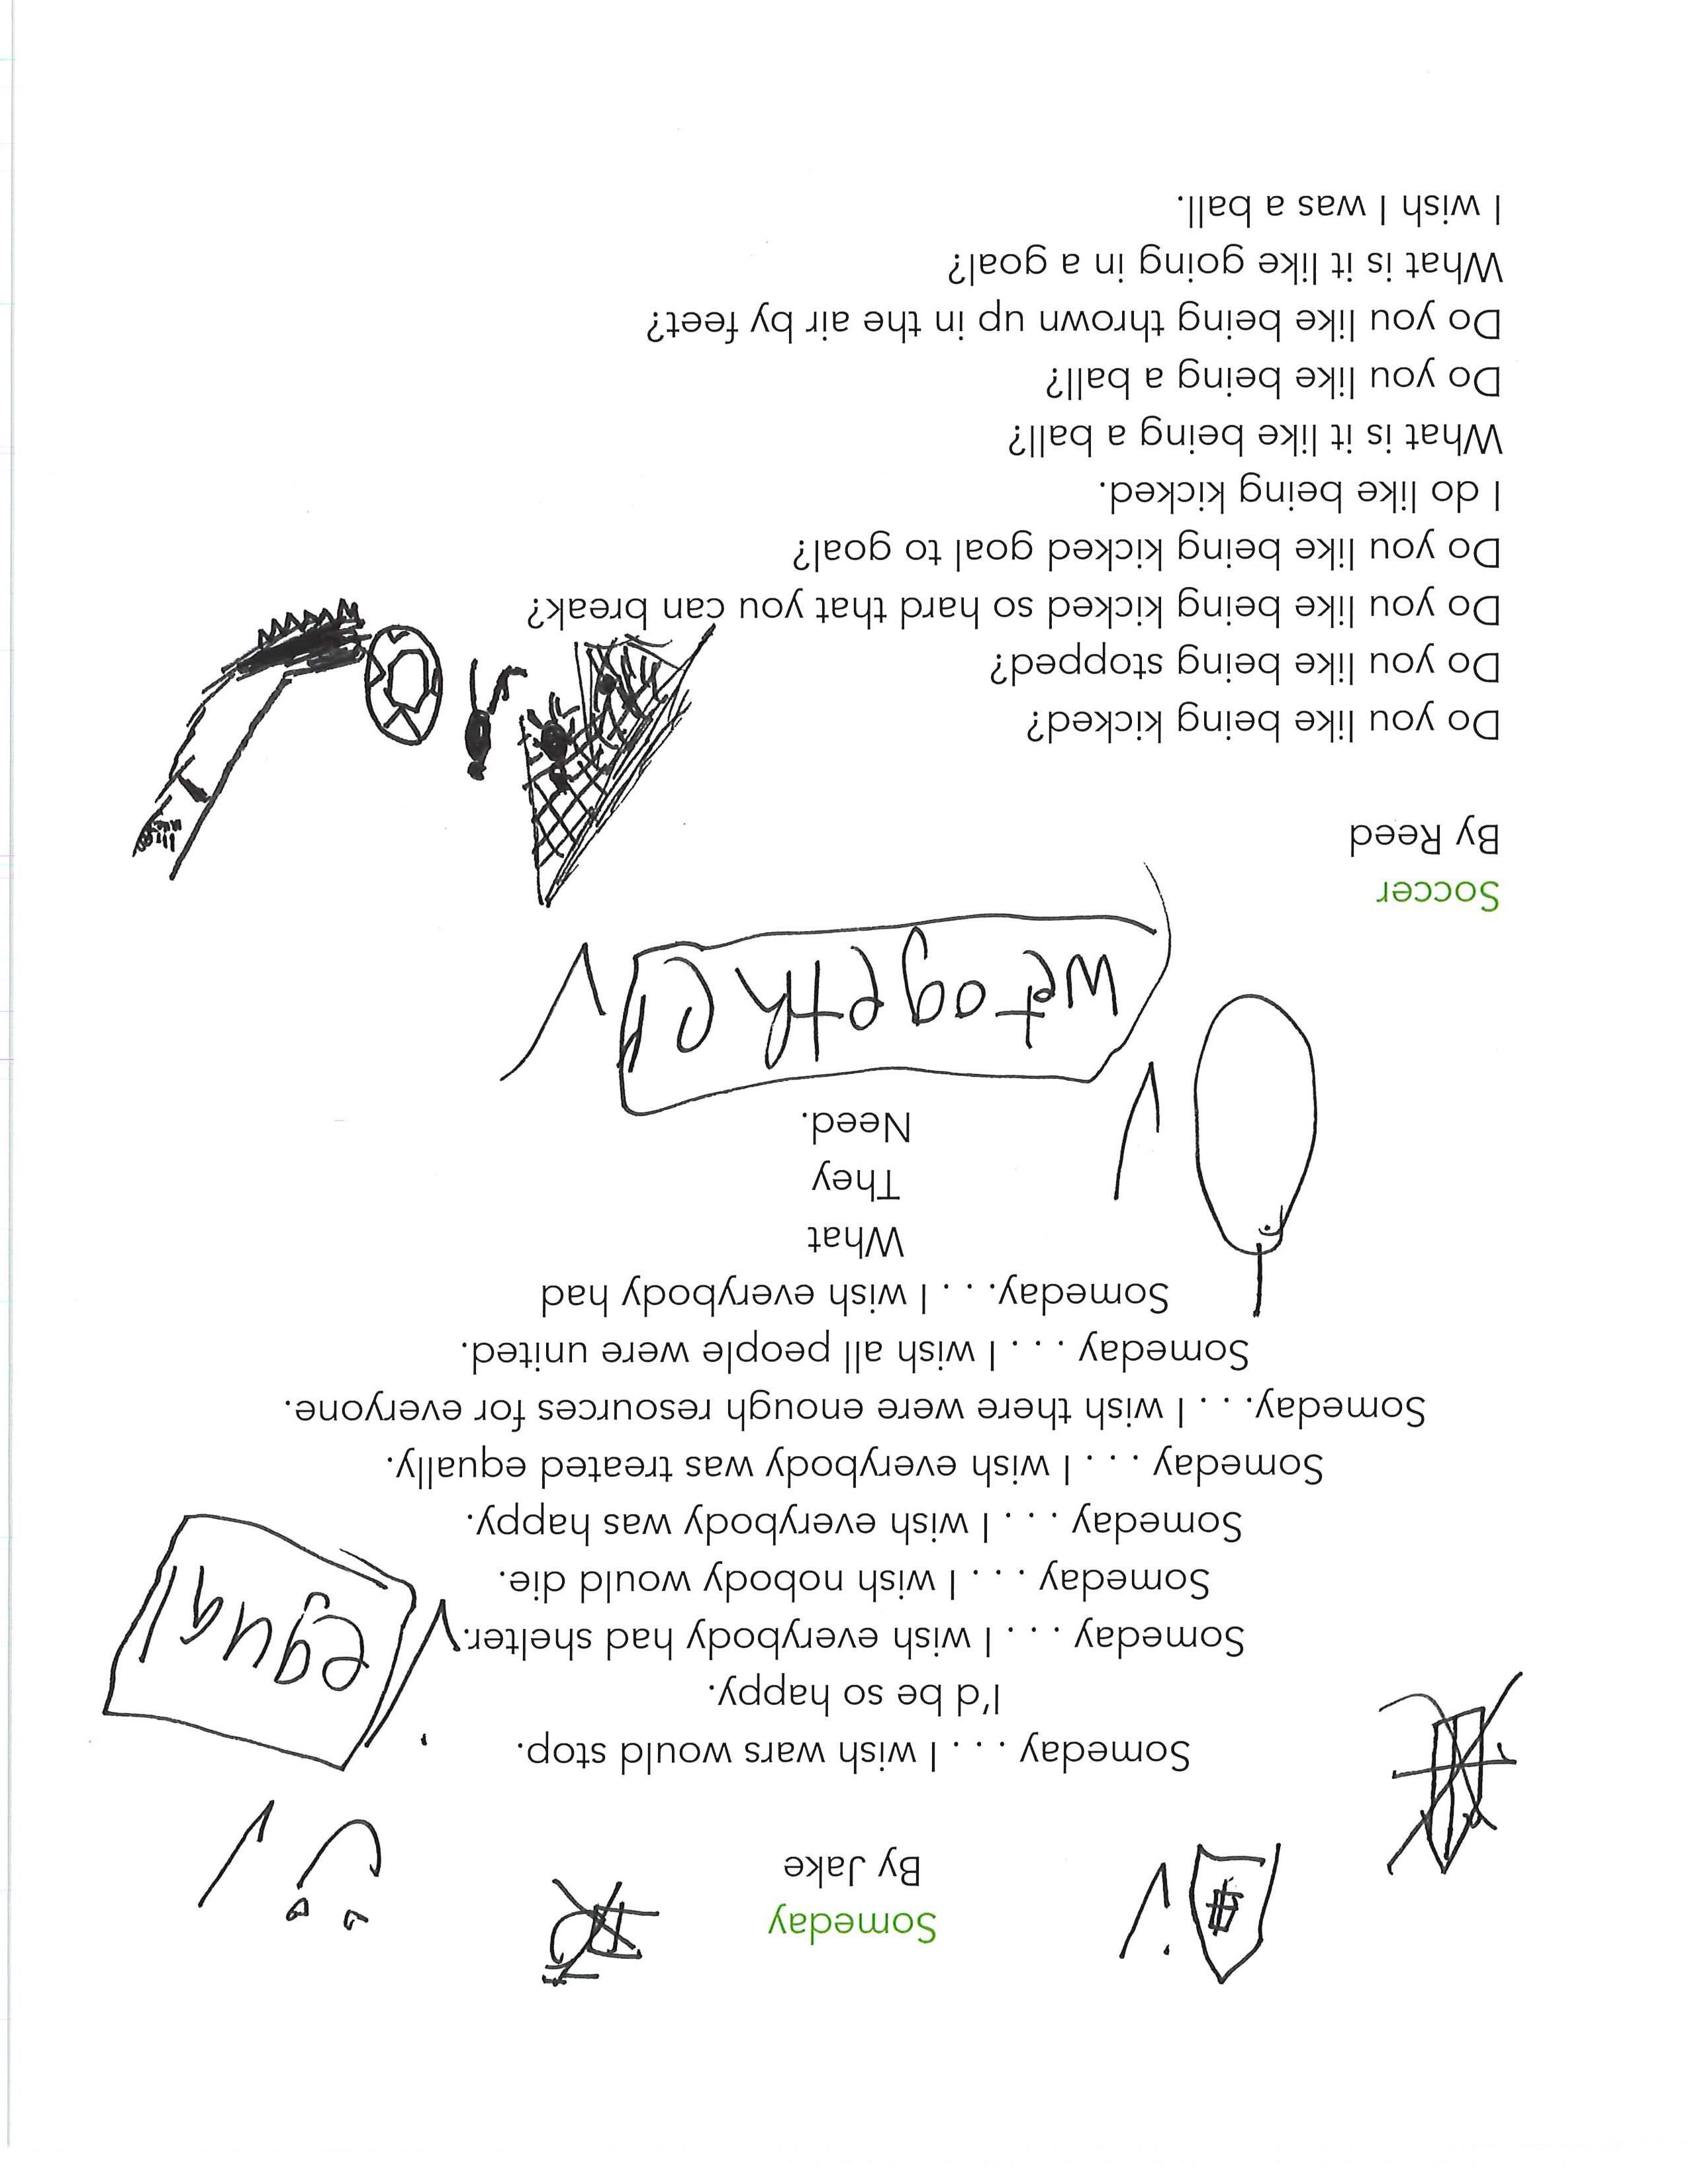 Someday
By Jake
Someday . . . I wish wars would stop.
I'd be so happy.
Someday . . . I wish everybody had shelter.
Someday . . . I wish nobody would die.
Someday . . . I wish everybody was happy.
Someday . . . I wish everybody was treated equally.
Someday. . . I wish there were enough resources for everyone.
Someday . . . I wish all people were united.
Someday. . . I wish everybody had
What
They
Need.
equal
we together
Soccer
By Reed
Do you like being kicked?
Do you like being stopped?
Do you like being kicked so hard that you can break?
Do you like being kicked goal to goal?
I do like being kicked.
What is it like being a ball?
Do you like being a ball?
Do you like being thrown up in the air by feet?
What is it like going in a goal?
I wish I was a ball.